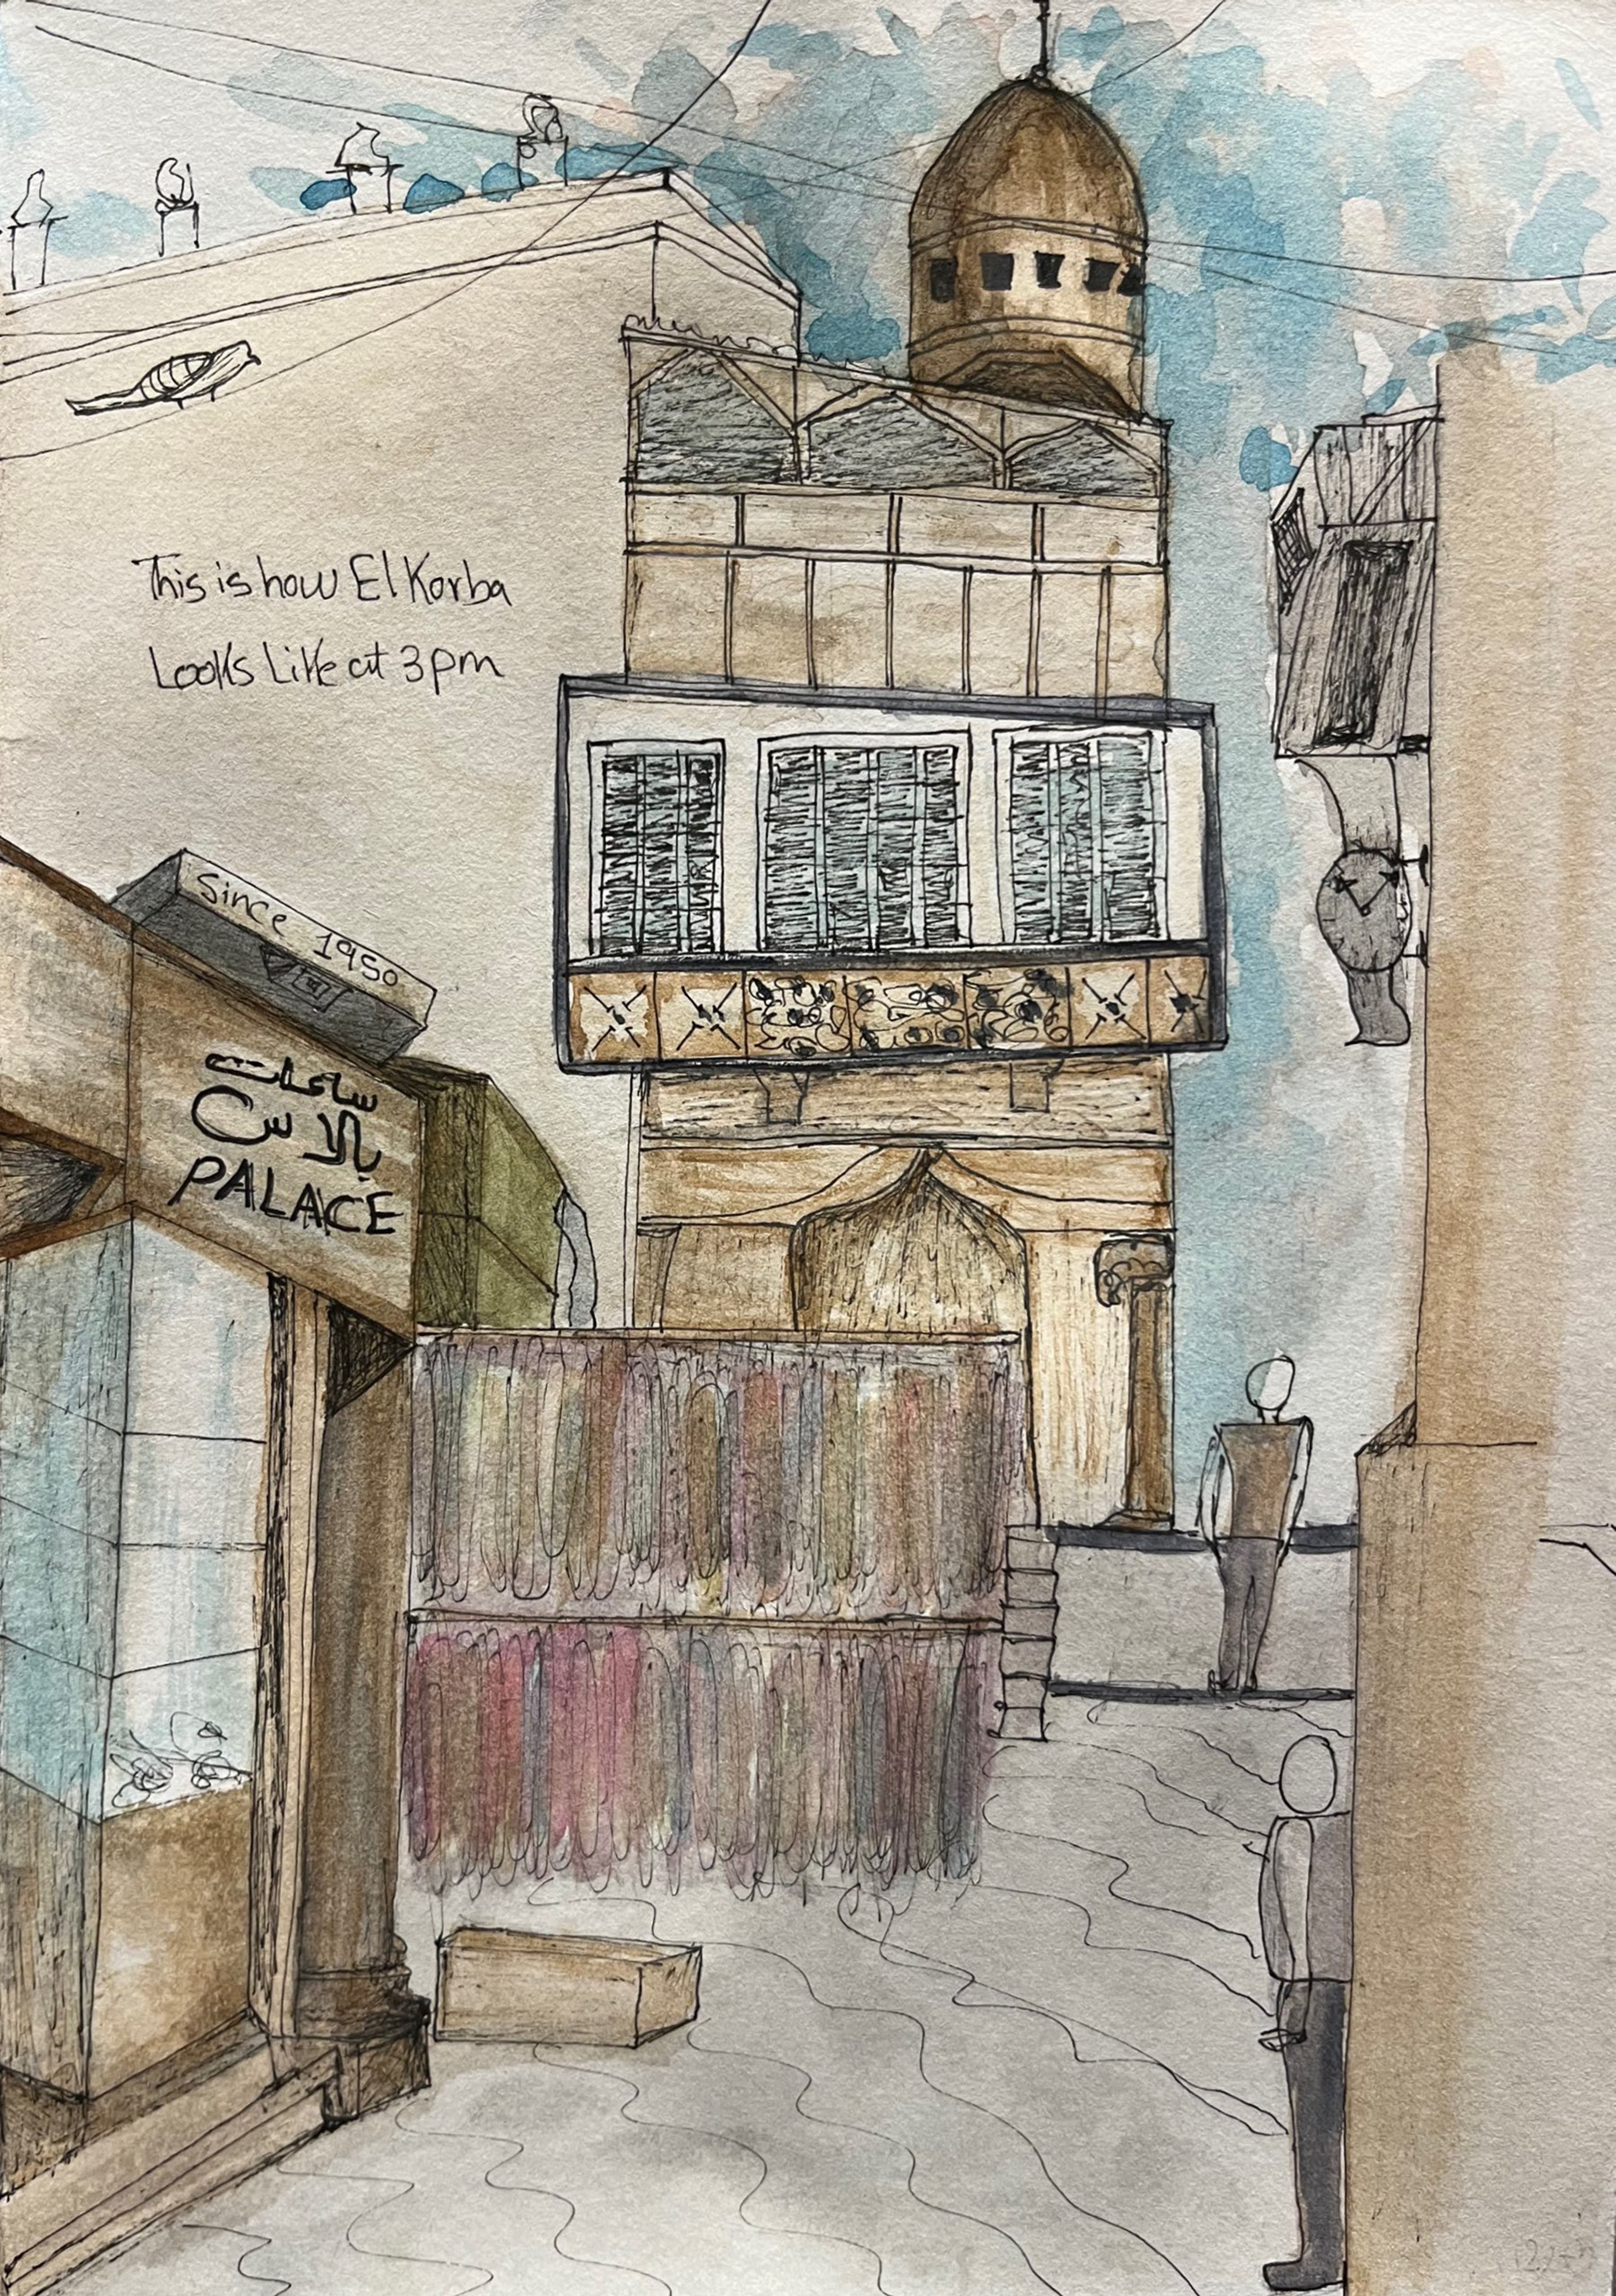 This is how El Korba
Looks Like at 3pm
Since 1950
ساعات
بالاس
PALACE